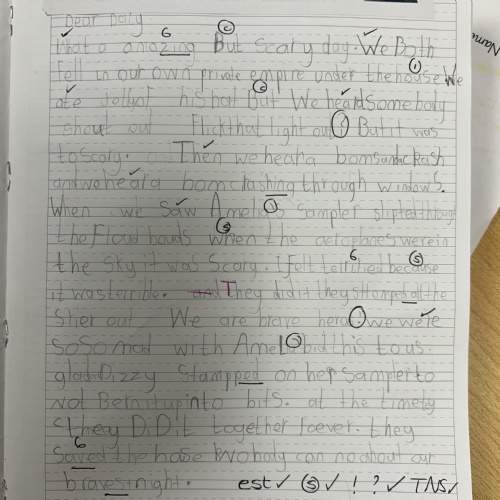 Dear Daiy
What a amazing But scary day. We Both
fell in our own private empire under the house We
ate Jelly of his hat But We heard somebody
shout out Flick that light out! But it was
to scary. Then we heara bomsandacRash
and we heara bom crashing through windows.
When we saw Amelia's sampler slipted through
the Floud bauds when the aeroplanes were in
the sky it was scary. I felt terrified because
it was terrible. and They did it they stomped at the
Sher out We are brave hero! we we're
so So mad with Amelia bid this to us.
glad Dizzy Stampped on her Sampler to
Not Bern it up into bits. at the timely
they DiD it together foever. they
Saved the house Nobody can no about our
bravest night. est ✓ (s) ✓ ! ? ✓ TNS
Name